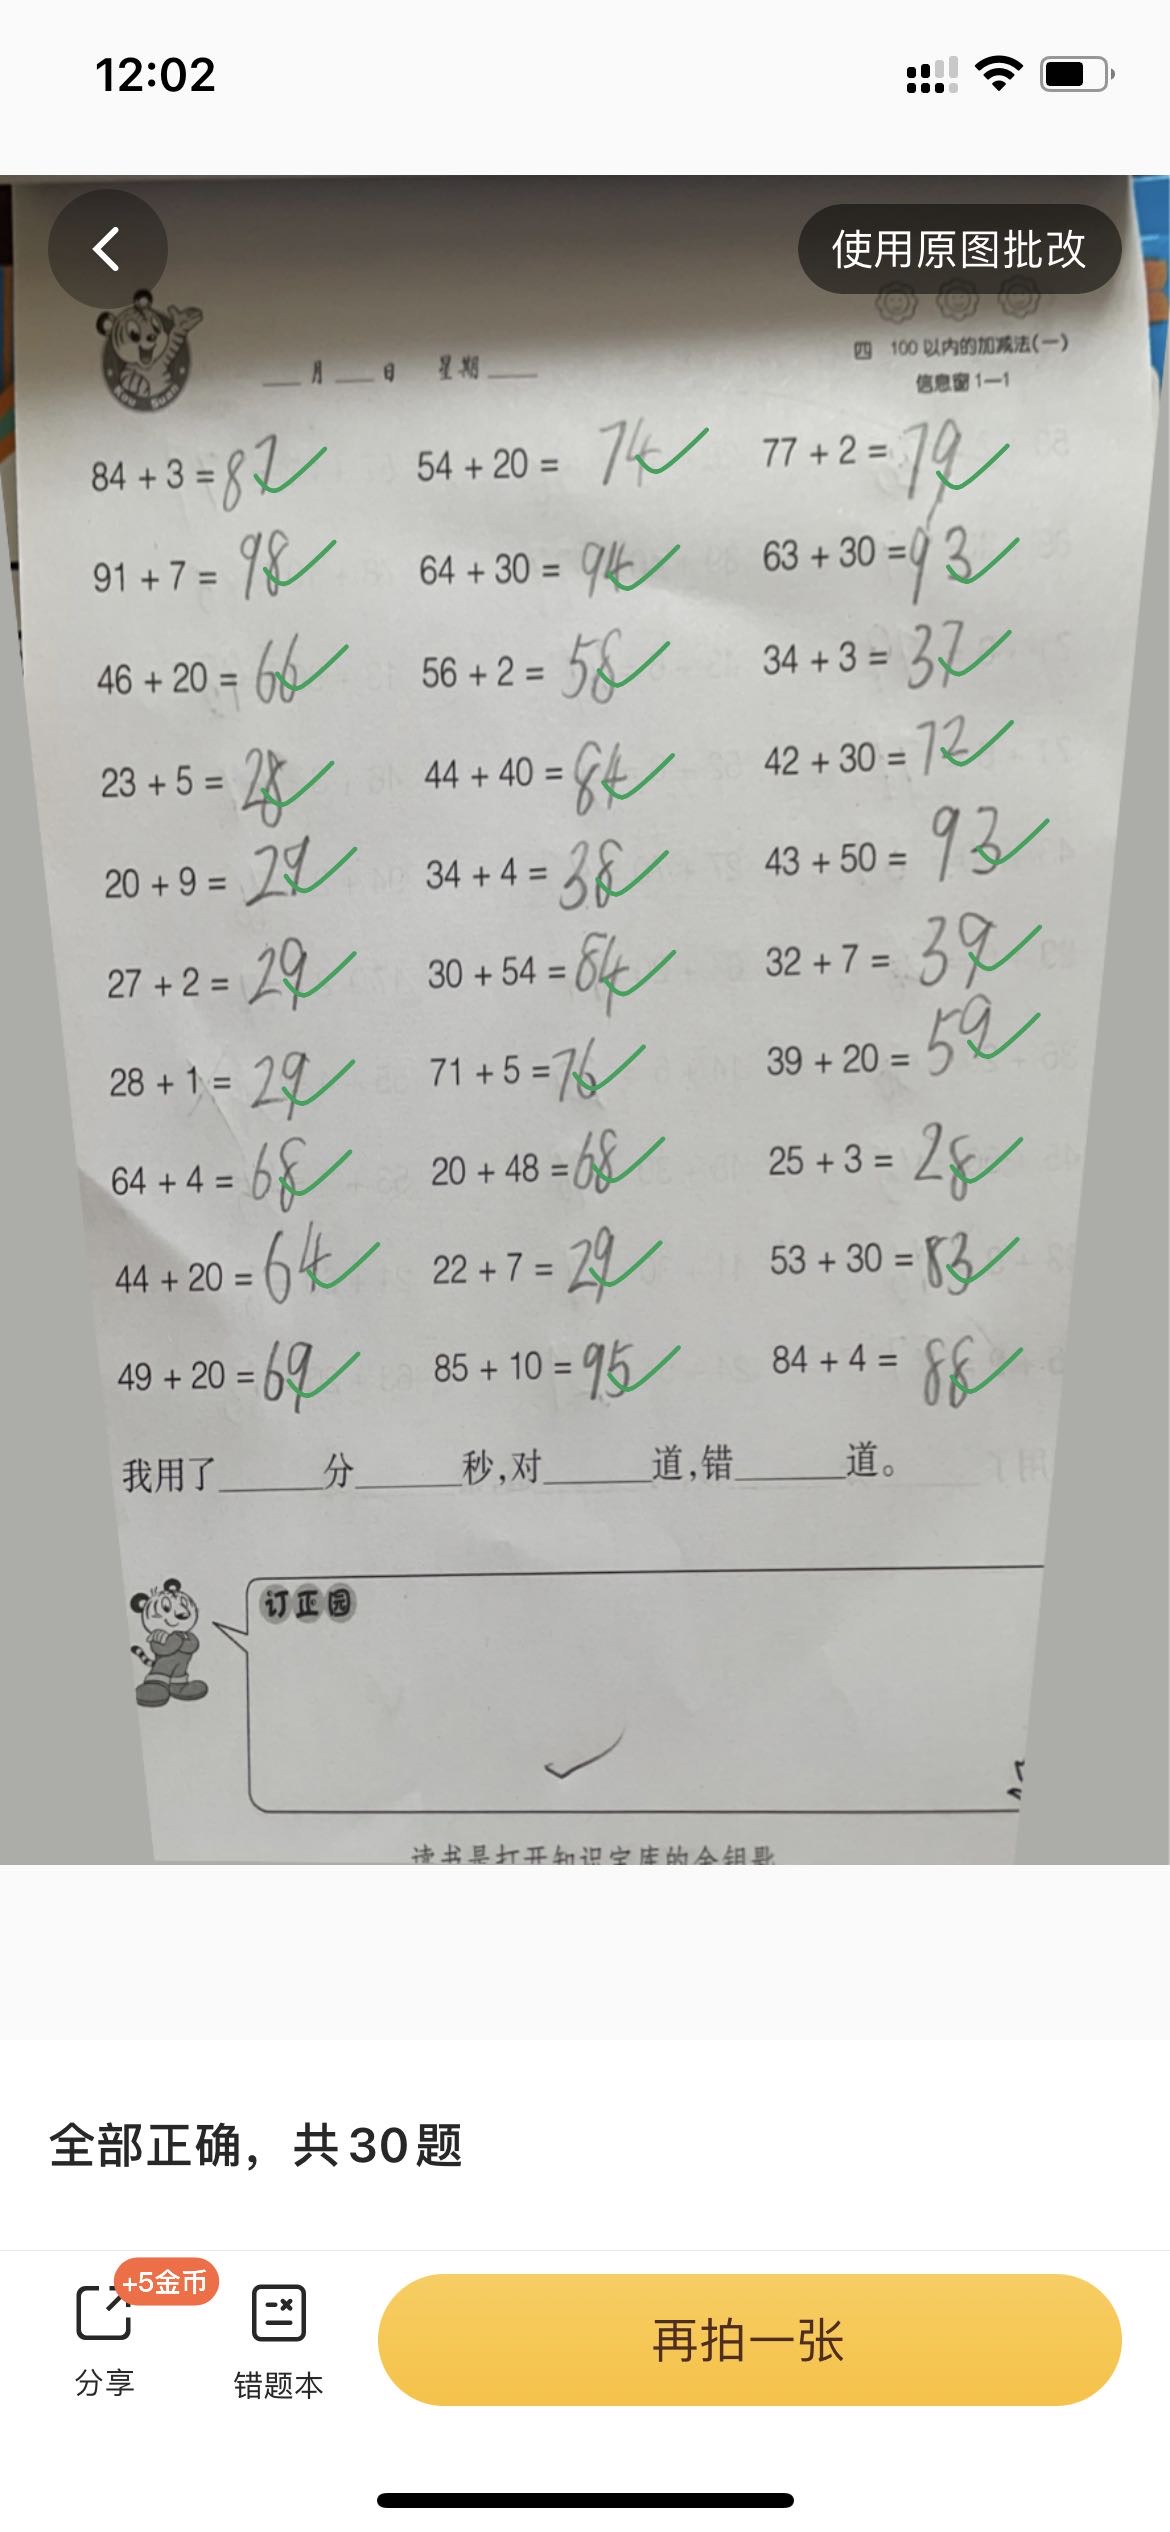 12:02
使用原图批改
四 100以内的加减法(一)
___月___日 星期___
信息窗1—1
Kou Suan
84 + 3 = 87 54 + 20 = 74 77 + 2 = 79
91 + 7 = 98 64 + 30 = 94 63 + 30 = 93
46 + 20 = 66 56 + 2 = 58 34 + 3 = 37
23 + 5 = 28 44 + 40 = 84 42 + 30 = 72
20 + 9 = 29 34 + 4 = 38 43 + 50 = 93
27 + 2 = 29 30 + 54 = 84 32 + 7 = 39
28 + 1 = 29 71 + 5 = 76 39 + 20 = 59
64 + 4 = 68 20 + 48 = 68 25 + 3 = 28
44 + 20 = 64 22 + 7 = 29 53 + 30 = 83
49 + 20 = 69 85 + 10 = 95 84 + 4 = 88
我用了______分______秒,对______道,错______道。
订正园
读书是打开知识宝库的金钥匙
全部正确，共30题
+5金币
分享
错题本
再拍一张